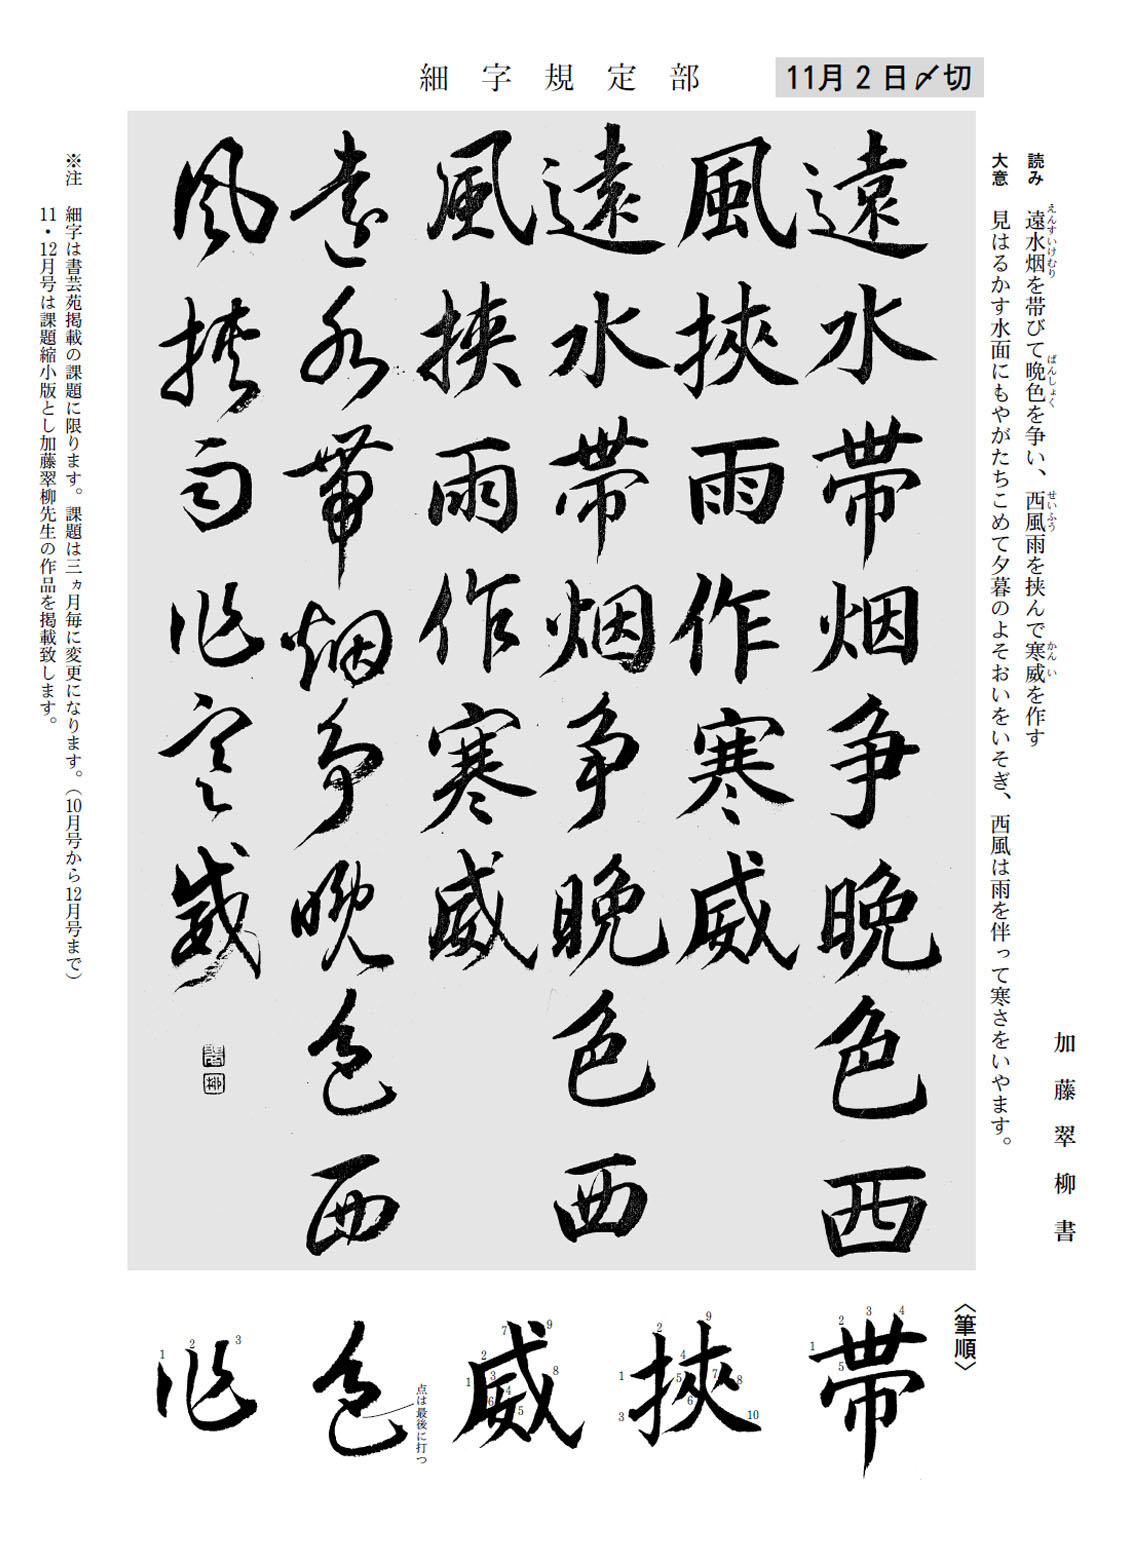 細字規定部
11月2日〆切
読み 遠水烟を帯びて晩色を争い、西風雨を挟んで寒威を作す
えんすいけむり
ばんしょく
せいふう
かんい
大意 見はるかす水面にもやがたちこめて夕暮のよそおいをいそぎ、西風は雨を伴って寒さをいやます。
加藤翠柳書
遠水帯烟争晩色西
風挾雨作寒威
遠水帯烟争晩色西
風挾雨作寒威
遠水帯烟争晩色西
風挾雨作寒威
※注 細字は書芸苑掲載の課題に限ります。課題は三ヵ月毎に変更になります。(10月号から12月号まで)
11・12月号は課題縮小版とし加藤翠柳先生の作品を掲載致します。
〈筆順〉
帯
1 2 3 4 5
挾
1 2 3 4 5 6 7 8 9 10
威
1 2 3 4 5 6 7 8 9
色
点は最後に打つ
作
1 2 3